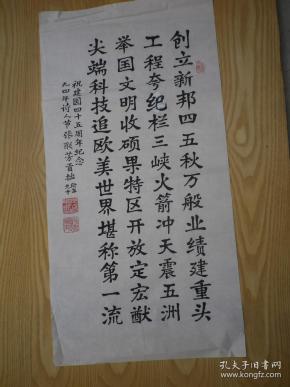 创立新邦四五秋万般业绩建重头
工程夸纪栏三峡火箭冲天震五洲
举国文明收硕果特区开放定宏猷
尖端科技追欧美世界堪称第一流
祝建国四十五周年纪念
九四年诗人节张聚芳首拙
孔夫子旧书网